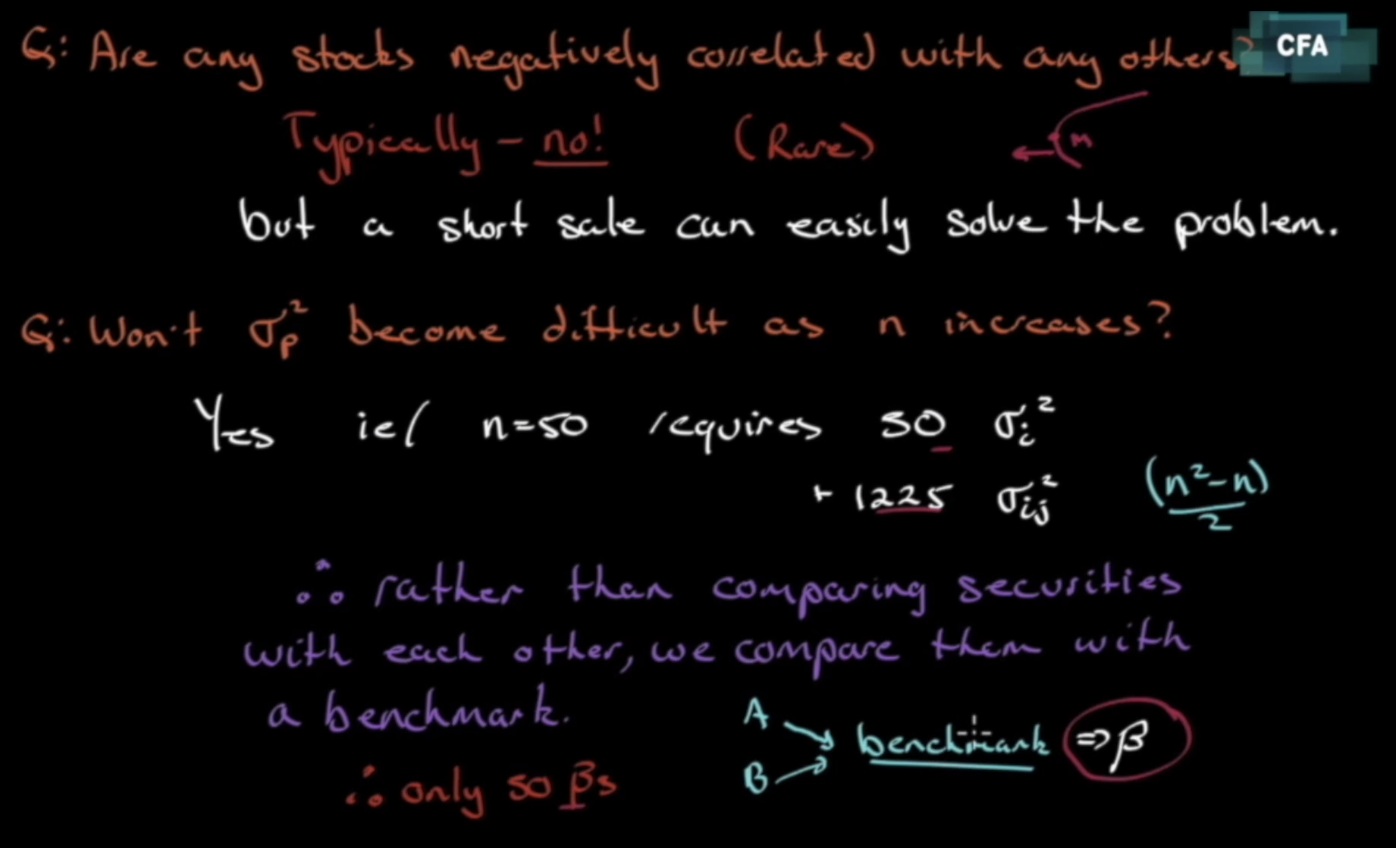 Q: Are any stocks negatively correlated with any others?
CFA
Typically – no! (Rare)
m
but a short sale can easily solve the problem.
Q: Won't σp² become difficult as n increases?
Yes ie/ n=50 requires 50 σi²
+ 1225 σij² (n²-n)/2
∴ rather than comparing securities
with each other, we compare them with
a benchmark.
A
B
benchmark ⇒ β
∴ only 50 βs